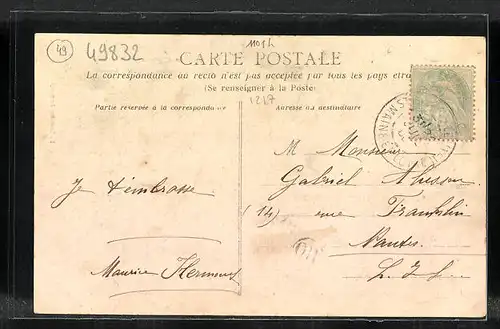 49
49832
11034
CARTE POSTALE
La correspondance au recto n'est pas acceptée par tous les pays étra
(Se renseigner à la Poste)
1217
Partie réservée à la correspondance
Adresse du destinataire
Je t'embrasse
Maurice
M Monsieur
Gabriel
(14) rue Franklin
Nantes
L. I.